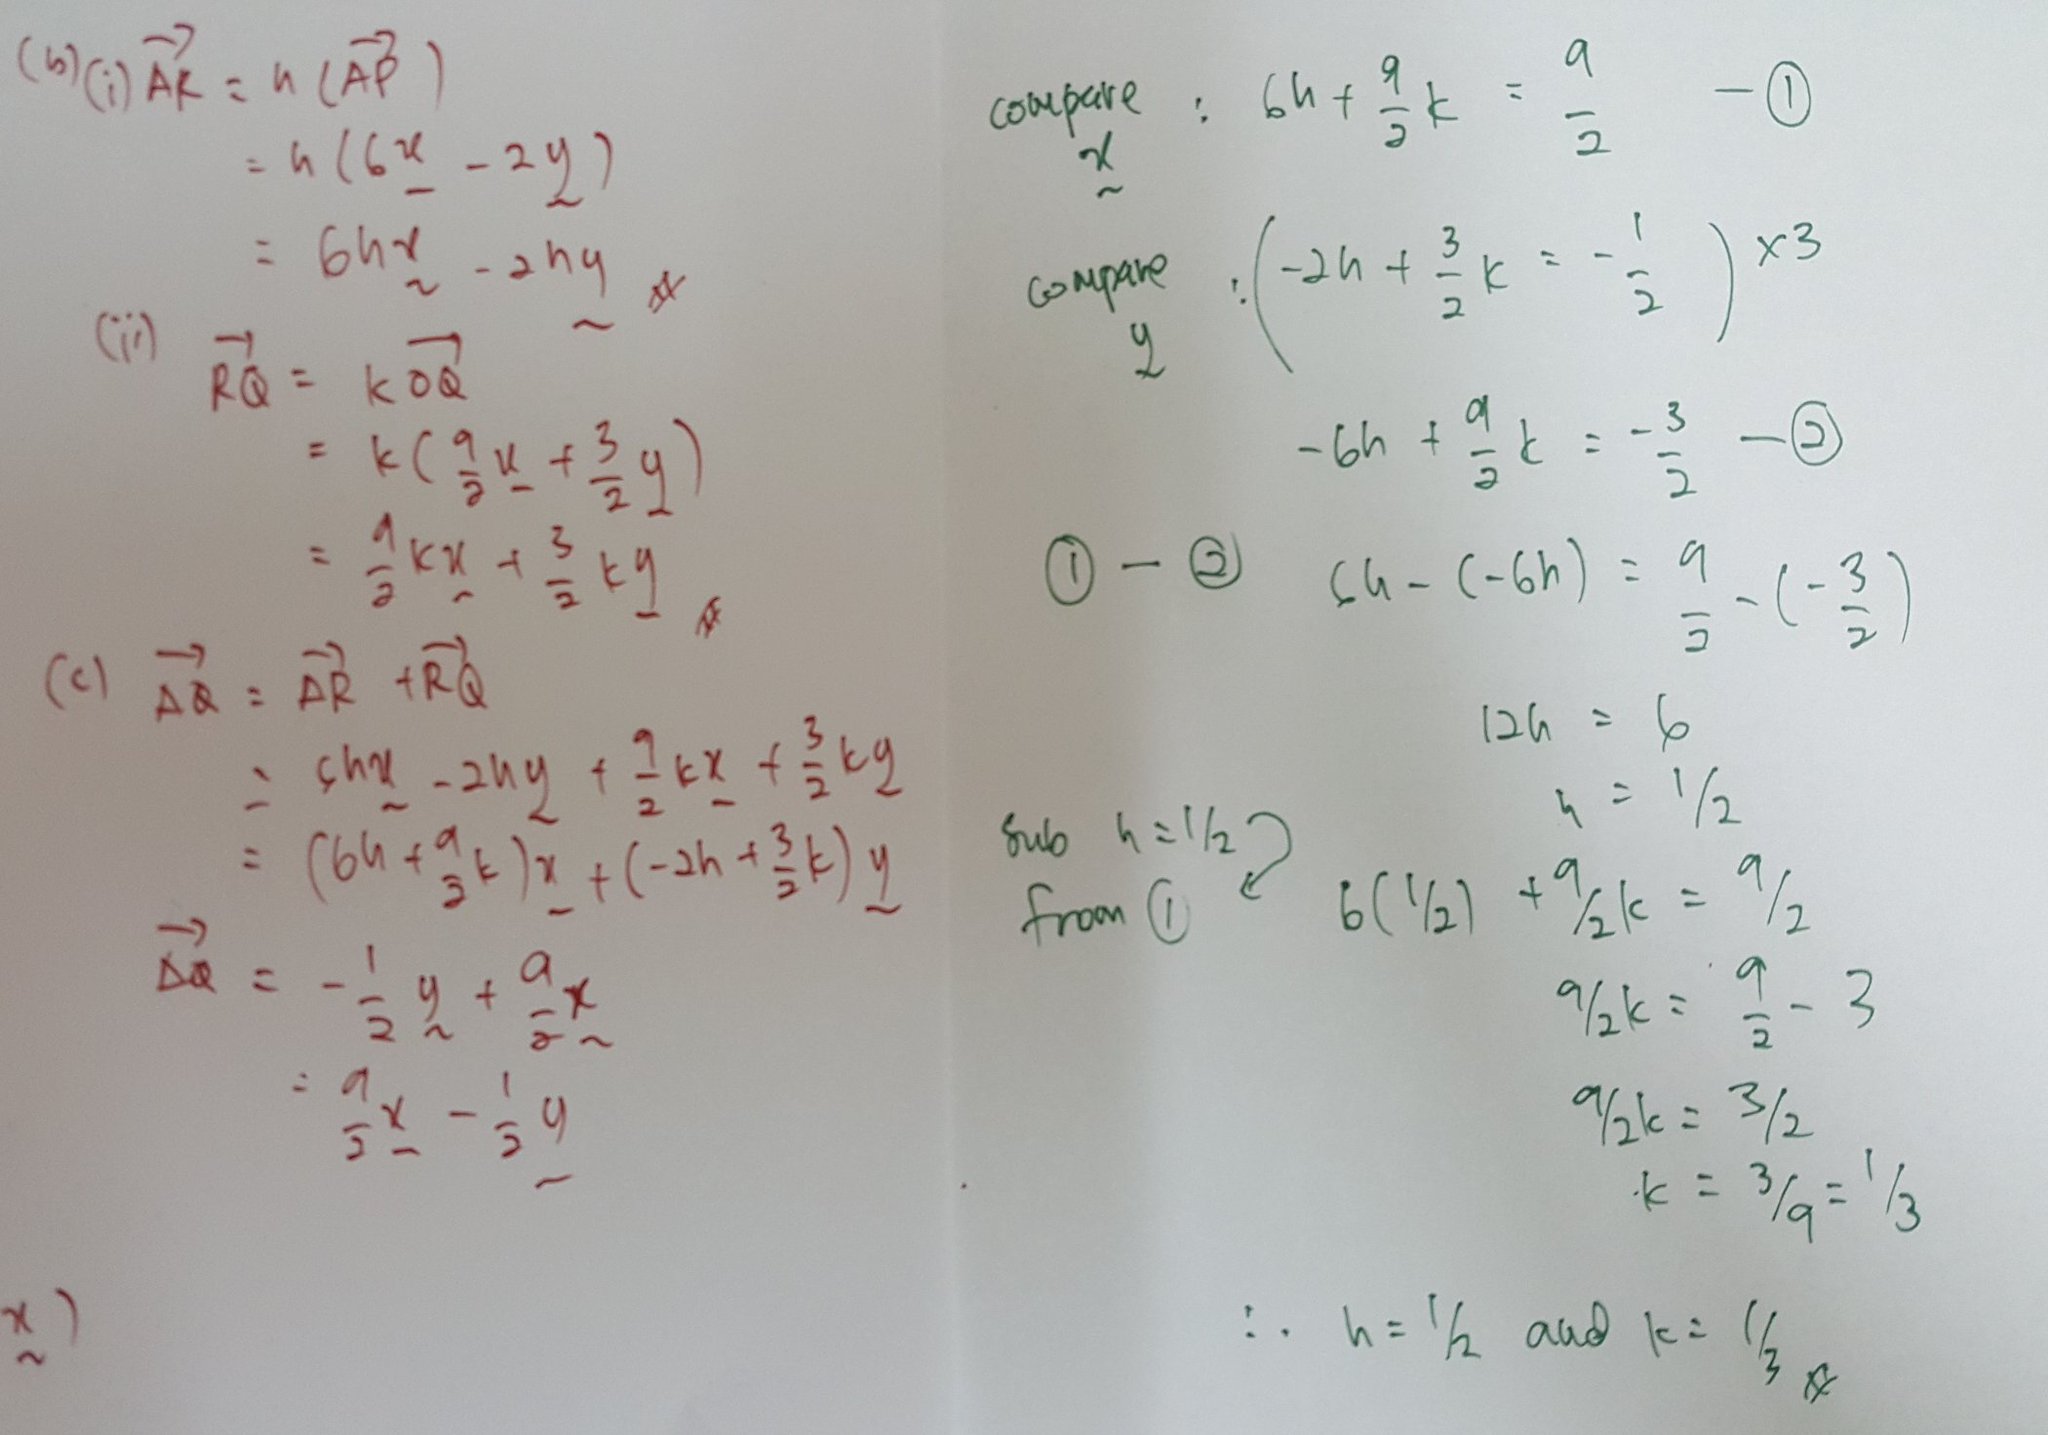 (b)(i) $\overrightarrow{AR}$ = h ($\overrightarrow{AP}$)
= h (6x̰ - 2y̰)
= 6hx̰ - 2hy̰
(ii) $\overrightarrow{RQ}$ = k $\overrightarrow{OQ}$
= k ($\frac{9}{2}$x̰ + $\frac{3}{2}$y̰)
= $\frac{9}{2}$kx̰ + $\frac{3}{2}$ky̰
(c) $\overrightarrow{AQ}$ = $\overrightarrow{AR}$ + $\overrightarrow{RQ}$
= 6hx̰ - 2hy̰ + $\frac{9}{2}$kx̰ + $\frac{3}{2}$ky̰
= (6h + $\frac{9}{2}$k)x̰ + (-2h + $\frac{3}{2}$k)y̰
$\overrightarrow{AQ}$ = -$\frac{1}{2}$y̰ + $\frac{9}{2}$x̰
= $\frac{9}{2}$x̰ - $\frac{1}{2}$y̰
x̰)
compare x̰ : 6h + $\frac{9}{2}$k = $\frac{9}{2}$ - ①
compare y̰ : (-2h + $\frac{3}{2}$k = -$\frac{1}{2}$) ×3
-6h + $\frac{9}{2}$k = -$\frac{3}{2}$ - ②
① - ② 6h - (-6h) = $\frac{9}{2}$ - (-$\frac{3}{2}$)
12h = 6
h = 1/2
sub h = 1/2
from ① 6(1/2) + 9/2k = 9/2
9/2k = $\frac{9}{2}$ - 3
9/2k = 3/2
k = 3/9 = 1/3
∴ h = 1/2 and k = 1/3